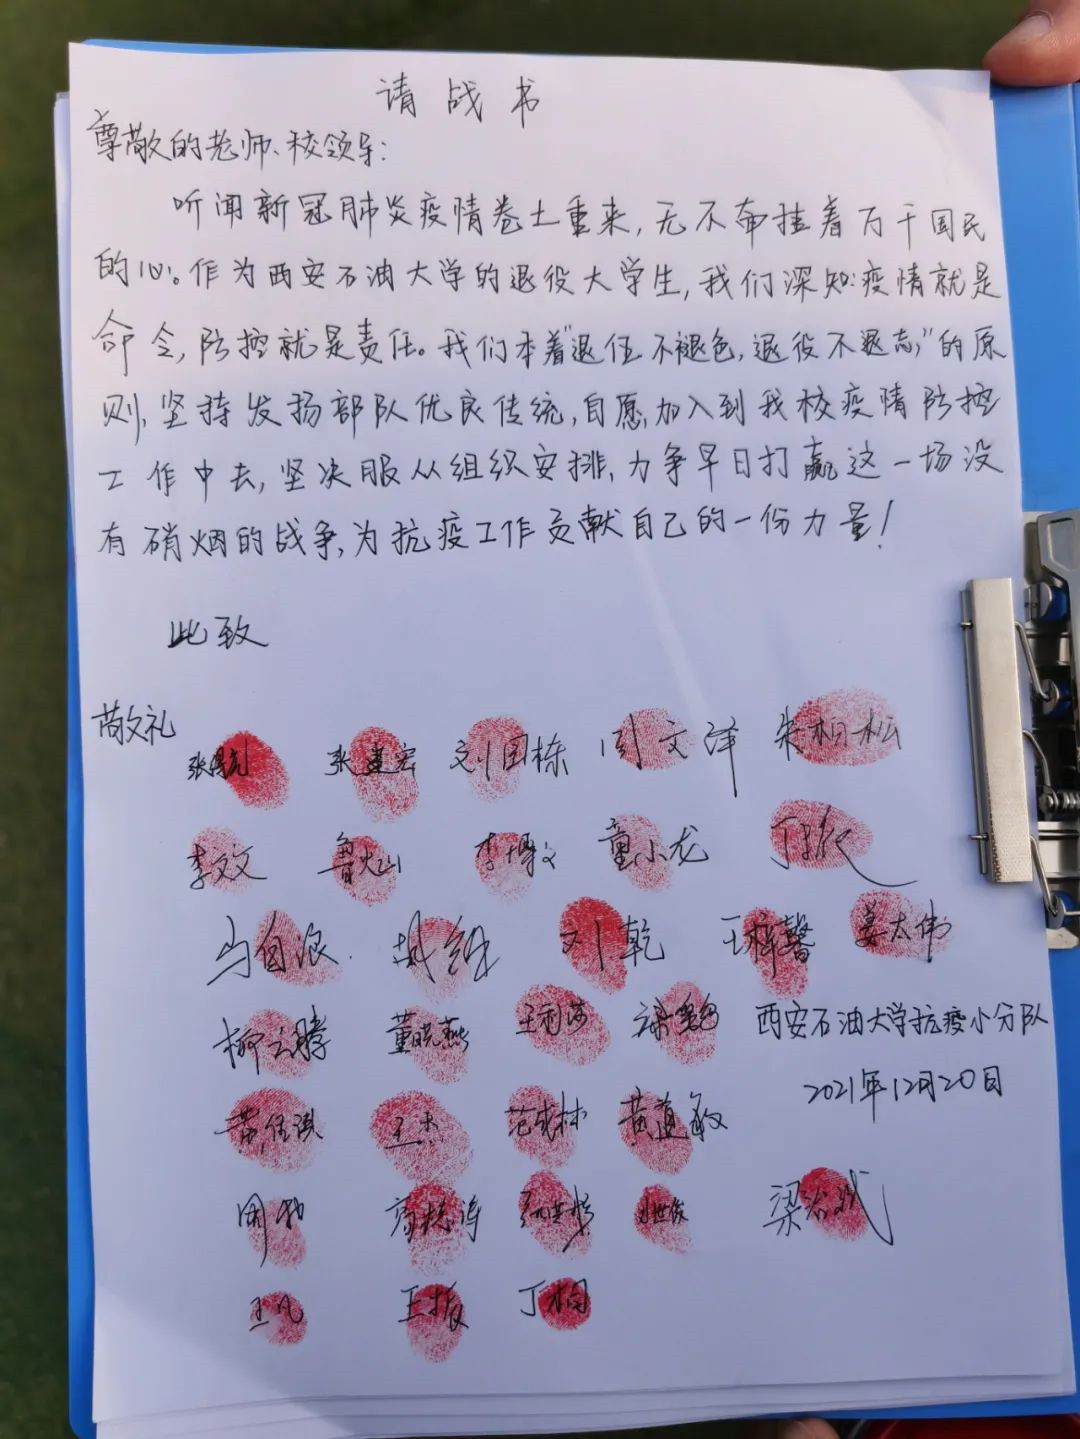 请战书
尊敬的老师、校领导:
听闻新冠肺炎疫情卷土重来,无不牵挂着万千国民
的心。作为西安石油大学的退役大学生,我们深知疫情就是
命令,防控就是责任。我们本着“退伍不褪色,退役不退志,”的原
则,坚持发扬部队优良传统,自愿加入到我校疫情防控
工作中去,坚决服从组织安排,力争早日打赢这一场没
有硝烟的战争,为抗疫工作贡献自己的一份力量!
此致
敬礼
张建宏 刘国栋 周文泽 朱桐松
李文文 鲁火山 李博文 童小龙
马自浪 刘乾 王梓馨 姜太伟
柳云腾 董晓燕 王利莎 西安石油大学抗疫小分队
2021年12月20日
王杰 范成林 黄道敏
梁治斌
王凡 王振 丁桐